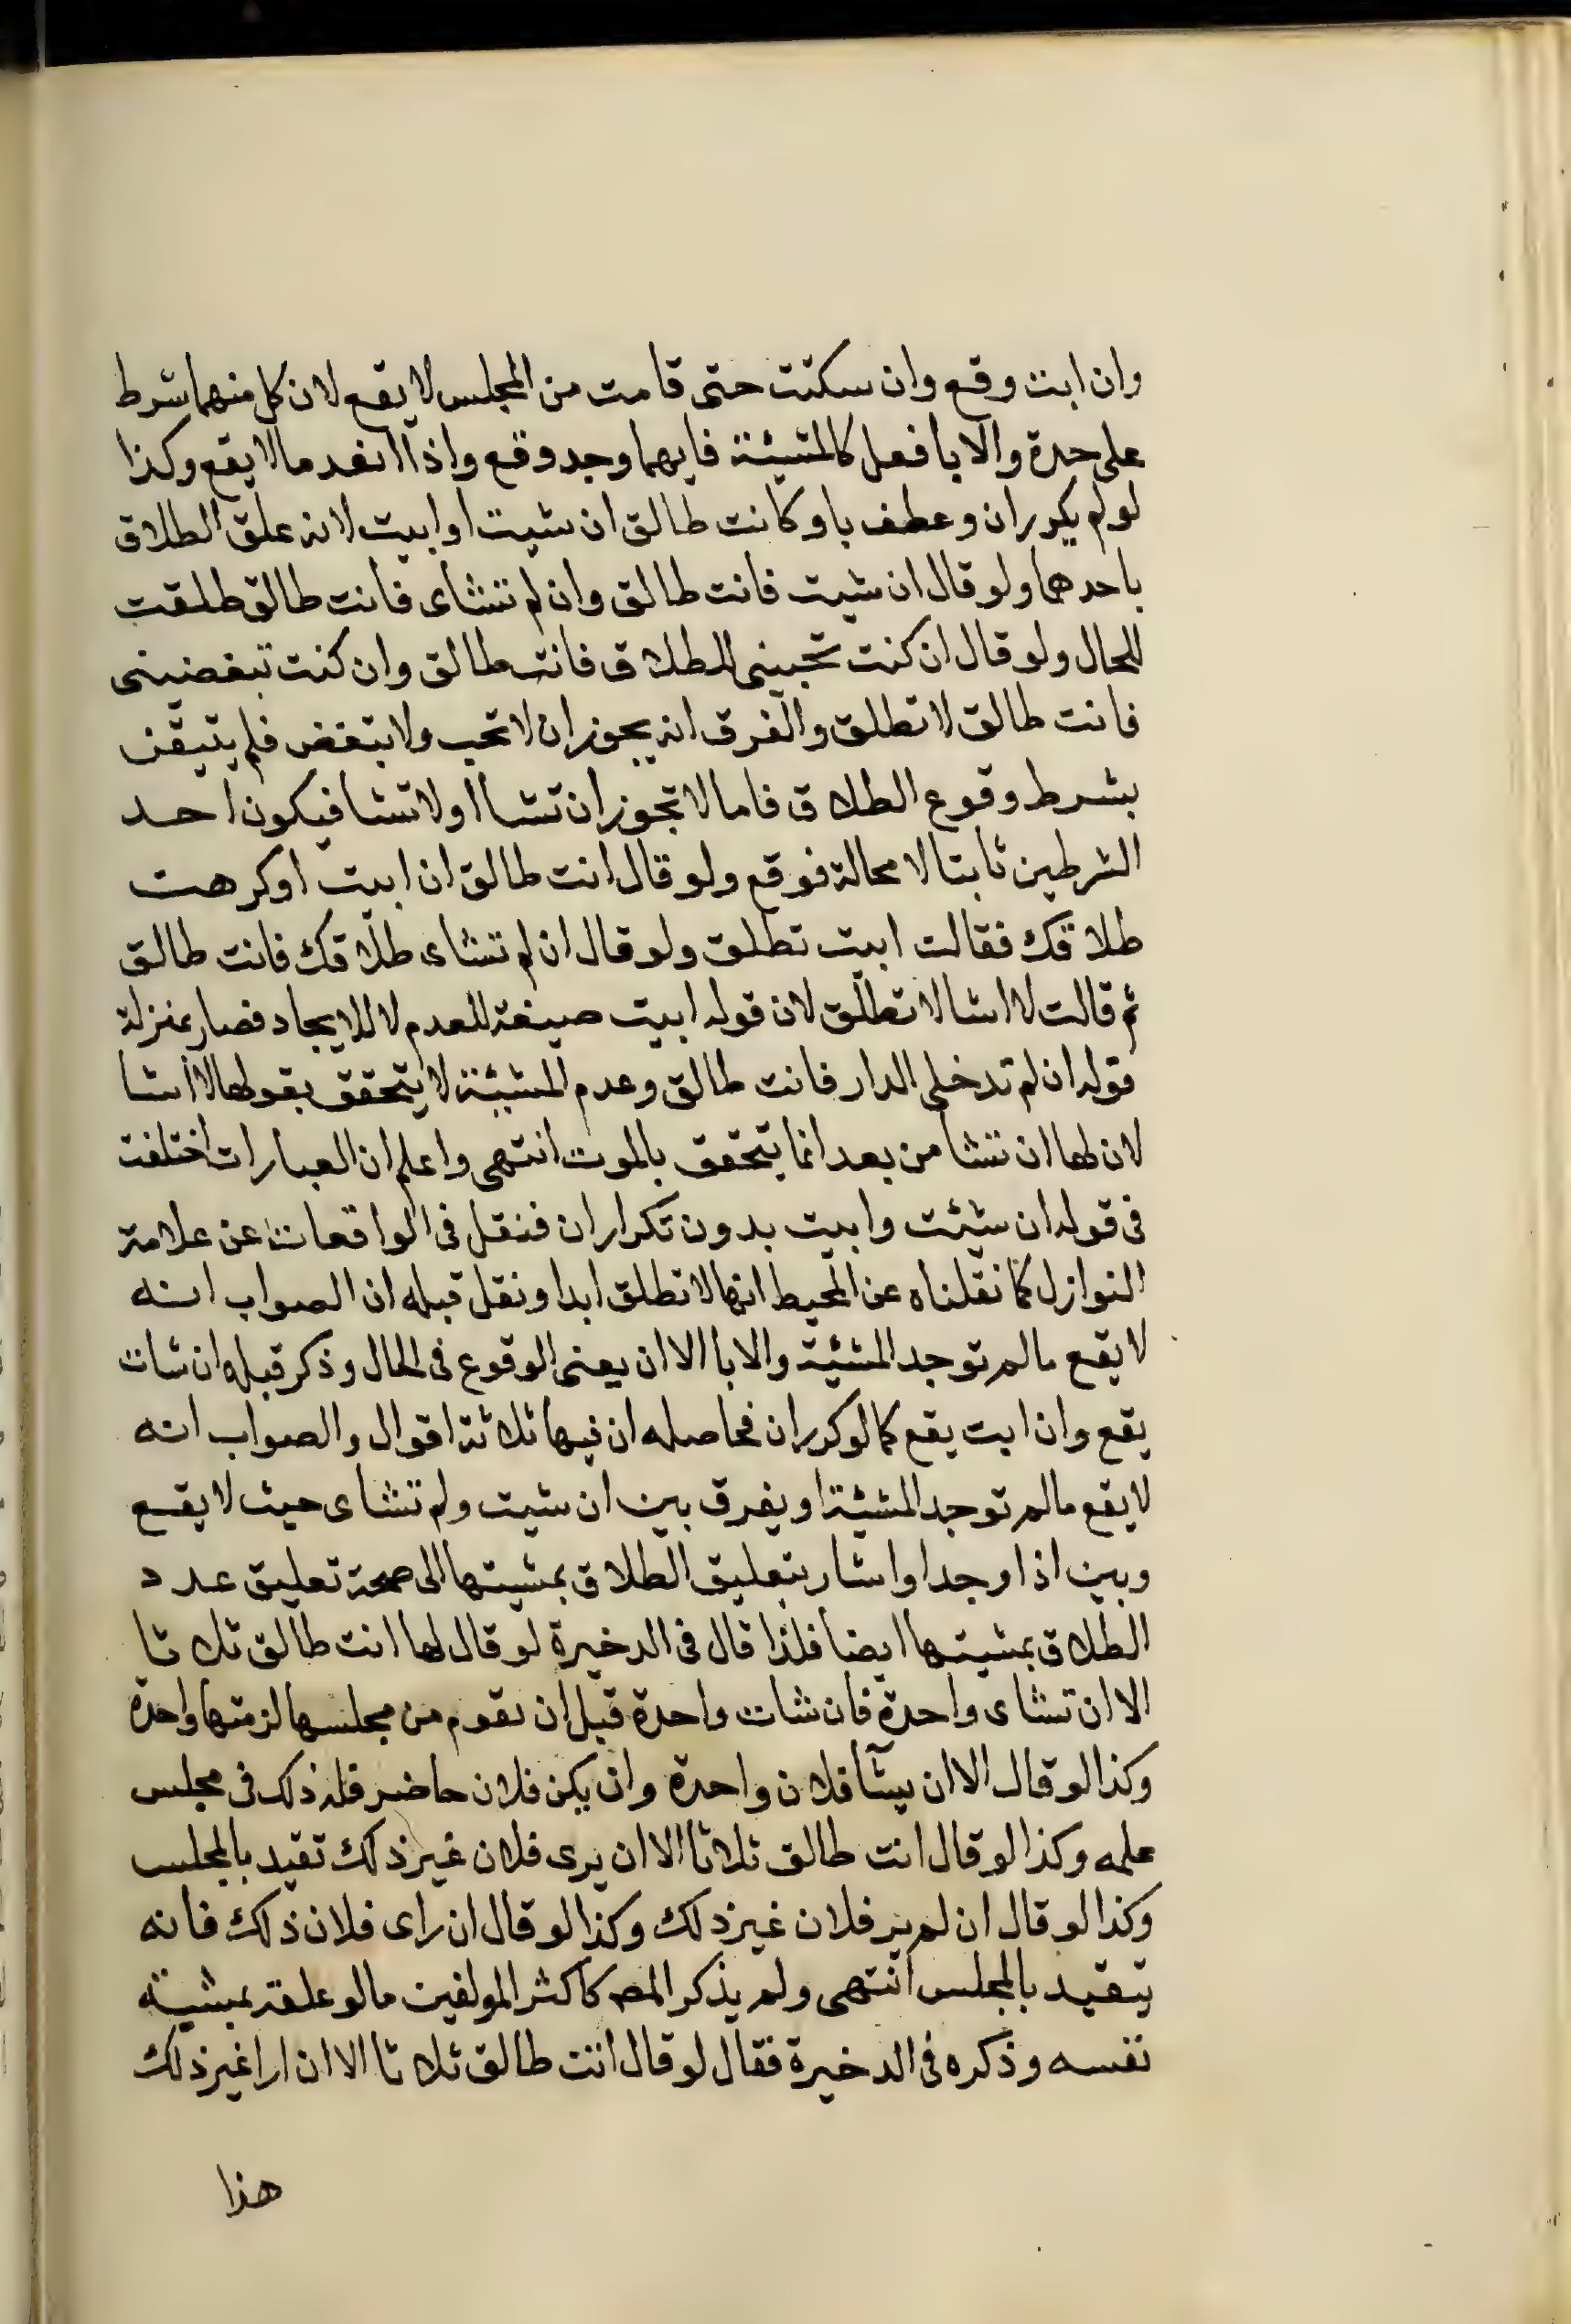 وان ابت وقع وان سكتت حتى قامت من المجلس لا يقع لان كل منهما شرط
على حدة والابا فعل كالمشيئة فايهما وجد وقع واذا انعدما لا يقع وكذا
لو لم يكرر ان وعطف باو كانت طالق ان شيت او ابيت لانه علق الطلاق
باحدهما ولو قال ان شيت فانت طالق وان لم تشاى فانت طالق طلقت
للحال ولو قال ان كنت تحبينى للطلاق فانت طالق وان كنت تبغضينى
فانت طالق لا تطلق والفرق انه يجوز ان لا تحب ولا تبغض فلم يتيقن
بشرط وقوع الطلاق فاما لا تجوز ان تشا اولا تشا فيكون احد
الشرطين ثابتا لا محالة فوقع ولو قال انت طالق ان ابيت او كرهت
طلاقك فقالت ابيت تطلق ولو قال ان لم تشاى طلاقك فانت طالق
ثم قالت لا اشا لا تطلق لان قوله ابيت صيغة للعدم لا للايجاد فصار بمنزلة
قوله ان لم تدخلى الدار فانت طالق وعدم المشيئة لا يتحقق بقولها لا اشا
لان لها ان تشا من بعد انما يتحقق بالموت انتهى واعلم ان العبارات اختلفت
فى قوله ان شئت وابيت بدون تكرار ان فنقل فى الواقعات عن علامة
النوازل كما نقلناه عن المحيط انها لا تطلق ابدا ونقل قبله ان الصواب انه
لا يقع مالم توجد المشئية والابا الا ان يعنى الوقوع فى الحال وذكر قبله ان شات
يقع وان ابت يقع كما لو كرر ان فحاصله ان فيها ثلاثة اقوال والصواب انه
لا يقع مالم توجد المشئية او يفرق بين ان شيت ولم تشاى حيث لا يقع
وبين اذا وجدا واشار بتعليق الطلاق بمشيتها الى صحة تعليق عدد
الطلاق بمشيتها ايضا فلذا قال فى الدخيرة لو قال لها انت طالق ثلاثا
الا ان تشاى واحدة فان شات واحدة قبل ان تقوم من مجلسها لزمتها واحدة
وكذا لو قال الا ان يشآ فلان واحدة وان يكن فلان حاضر فله ذلك فى مجلس
علمه وكذا لو قال انت طالق ثلاثا الا ان يرى فلان غير ذلك تقيد بالمجلس
وكذا لو قال ان لم ير فلان غير ذلك وكذا لو قال ان راى فلان ذلك فانه
يتقيد بالمجلس انتهى ولم يذكر المص كاكثر المولفين مالو علقه بمشيته
نفسه وذكره فى الدخيرة فقال لو قال انت طالق ثلاثا الا ان ارا غير ذلك
هذا